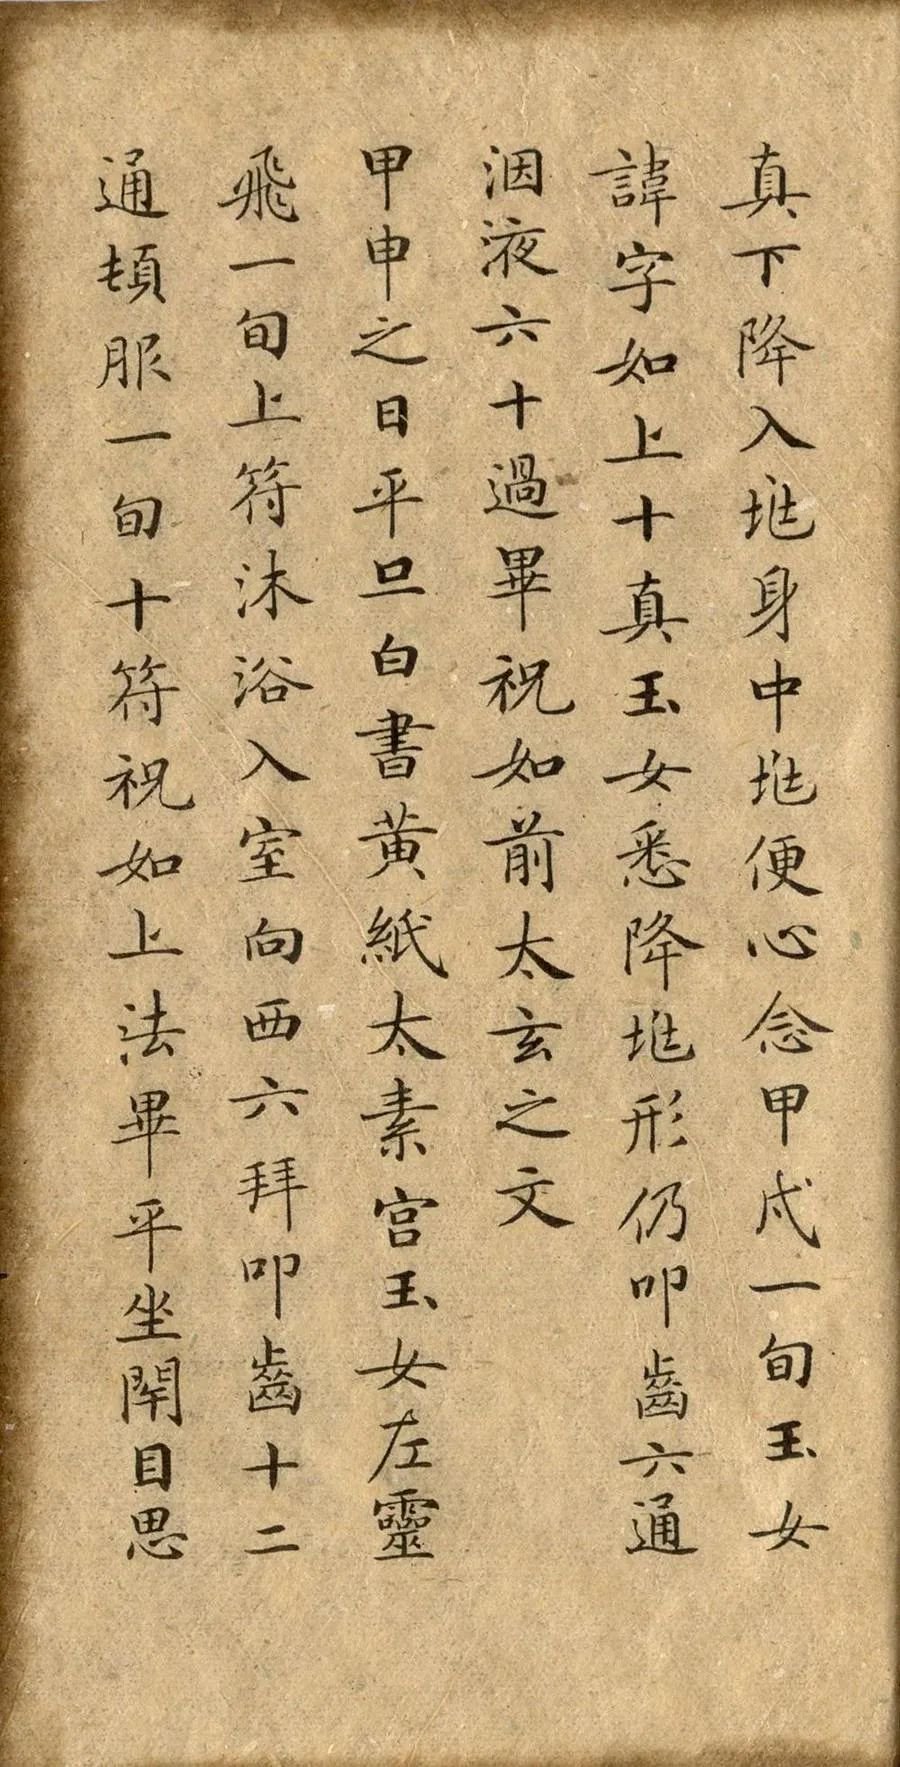 真下降入垗身中垗便心念甲戌一旬玉女
諱字如上十真玉女悉降垗形仍叩齒六通
洇液六十過畢祝如前太玄之文
甲申之日平旦白書黄紙太素宫玉女左靈
飛一旬上符沐浴入室向西六拜叩齒十二
通頓服一旬十符祝如上法畢平坐閇目思